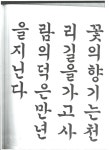 꽃의향기는천
리길을가고사
람의덕은만년
을지닌다